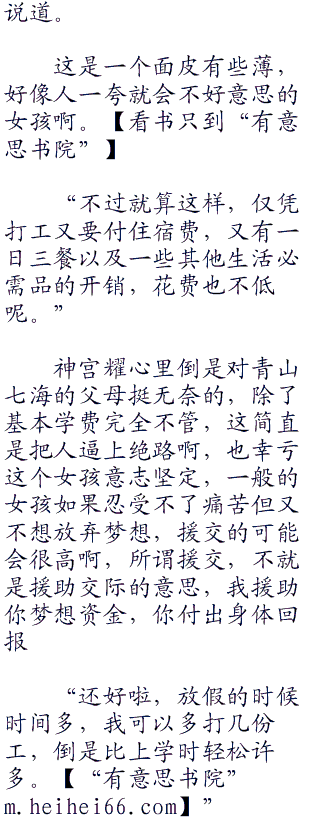 说道。
这是一个面皮有些薄，
好像人一夸就会不好意思的
女孩啊。【看书只到“有意
思书院”】
“不过就算这样，仅凭
打工又要付住宿费，又有一
日三餐以及一些其他生活必
需品的开销，花费也不低
呢。”
神宫耀心里倒是对青山
七海的父母挺无奈的，除了
基本学费完全不管，这简直
是把人逼上绝路啊，也幸亏
这个女孩意志坚定，一般的
女孩如果忍受不了痛苦但又
不想放弃梦想，援交的可能
会很高啊，所谓援交，不就
是援助交际的意思，我援助
你梦想资金，你付出身体回
报
“还好啦，放假的时候
时间多，我可以多打几份
工，倒是比上学时轻松许
多。【“有意思书院”
m.heihei66.com】”